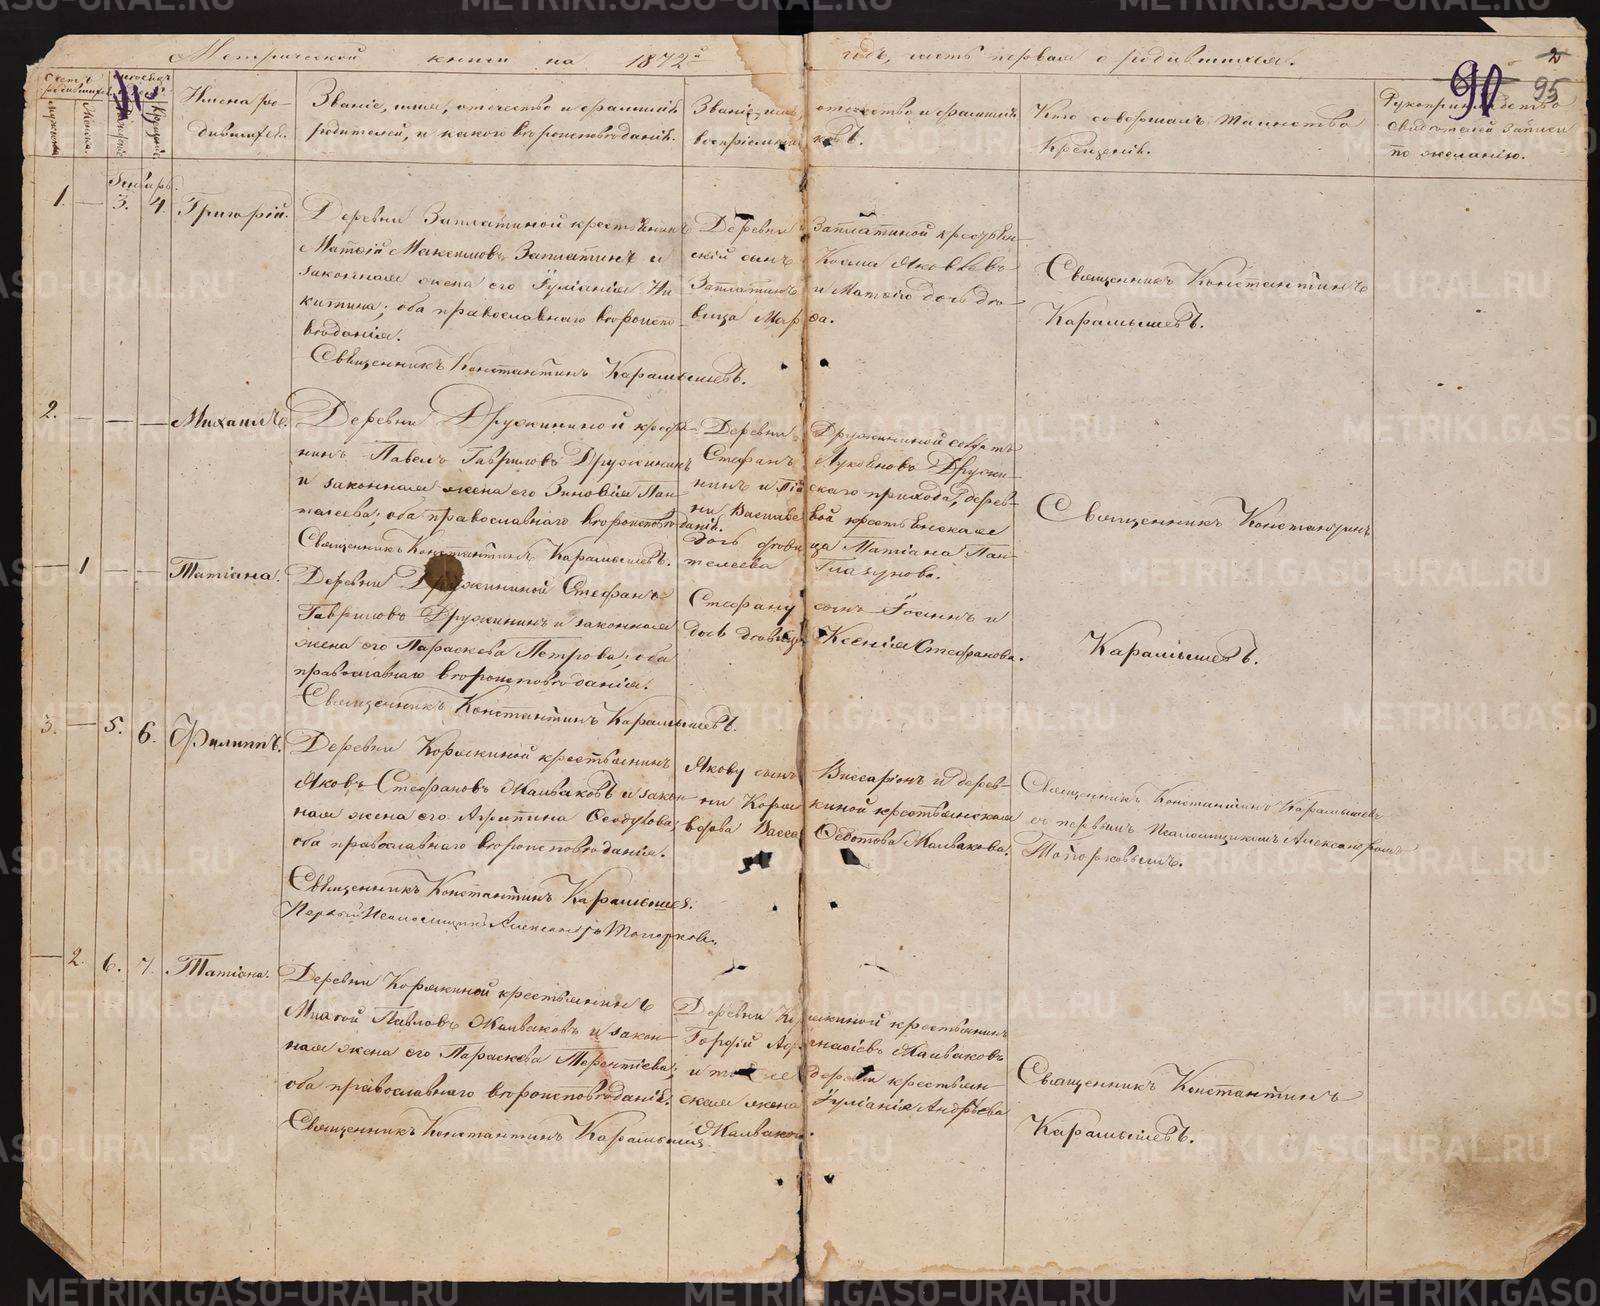 Метрической книги на 1872й годъ, часть первая о родившихся.
2
90
95
Счетъ родившихся.
Мужеска.
Женска.
Рожденіе.
Крещеніе.
Имена ро-
дившихся.
Званіе, имя, отечество и фамилія
родителей, и какого вѣроисповѣданія.
Званіе, имя, отечество и фамилія
воспріемниковъ.
Кто совершалъ таинство
Крещенія.
Рукоприкладство
свидѣтелей записи
по желанію.
Январь.
1. — 3. 4. Григорій.
Деревни Заплатиной крестьянинъ
Матѳій Максимовъ Заплатинъ и
законная жена его Іуліанія Ни
китина; оба православнаго вѣроиспо
вѣданія.
Священникъ Константинъ Карамышевъ.
Деревни Заплатиной крестьян
скій сынъ Косма Яковлевъ
Заплатинъ и Матѳія дочь дѣ
вица Марѳа.
Священникъ Константинъ
Карамышевъ.
2. — — — Михаилъ.
Деревни Дружининой кресть
нинъ Павелъ Гавриловъ Дружининъ
и законная жена его Зиновія Пан
телеева; оба православнаго вѣроисповѣданія.
Священникъ Константинъ Карамышевъ.
Деревни Дружининой солдатъ
Стефанъ Лукояновъ Дружи-
нинъ и скаго прихода, дерев-
ни вой крестьянская
дочь дѣвица Татіана Пан-
телеева Глазунова.
Священникъ Константинъ
— 1 — — Татіана.
Деревни Дружининой Стефанъ
Гавриловъ Дружининъ и законная
жена его Параскева Петрова; оба
православнаго вѣроисповѣданія.
Священникъ Константинъ Карамышевъ.
Стефану сынъ Іоаннъ и
дочь дѣвица Ксенія Стефанова.
Карамышевъ.
3. — 5. 6. Филиппъ.
Деревни Корякиной крестьянинъ
Яковъ Стефановъ Жалваковъ и закон
ная жена его Агрипина Ѳеодулова;
оба православнаго вѣроисповѣданія.
Священникъ Константинъ Карамышев.
Первый Псаломщикъ Александръ Топорков.
Якову сынъ Виссаріонъ и дерев-
ни Корякиной крестьянская
вдова Васса Ѳедотова Жалвакова.
Священникъ Константинъ Карамышевъ
съ первымъ Псаломщикомъ Александромъ
Топорковымъ.
— 2. 6. 7. Татіана.
Деревни Корякиной крестьянинъ
Михей Павловъ Жалваковъ и закон-
ная жена его Параскева Терентіева;
оба православнаго вѣроисповѣданія.
Священникъ Константинъ Карамышев.
Деревни Корякиной крестьянинъ
Гордій Аѳанасіевъ Жалваковъ
и той же деревни крестьян
ская жена Іуліанія Андрѣева
Жалвакова.
Священникъ Константинъ
Карамышевъ.
METRIKI.GASO-URAL.RU